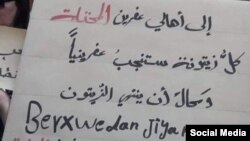 إلى أهالي عفرين المحتلة
كل زيتونة ستنجب عفرينياً
ومحال أن ينتهي الزيتون
Berxwedan Jiya
Social Media